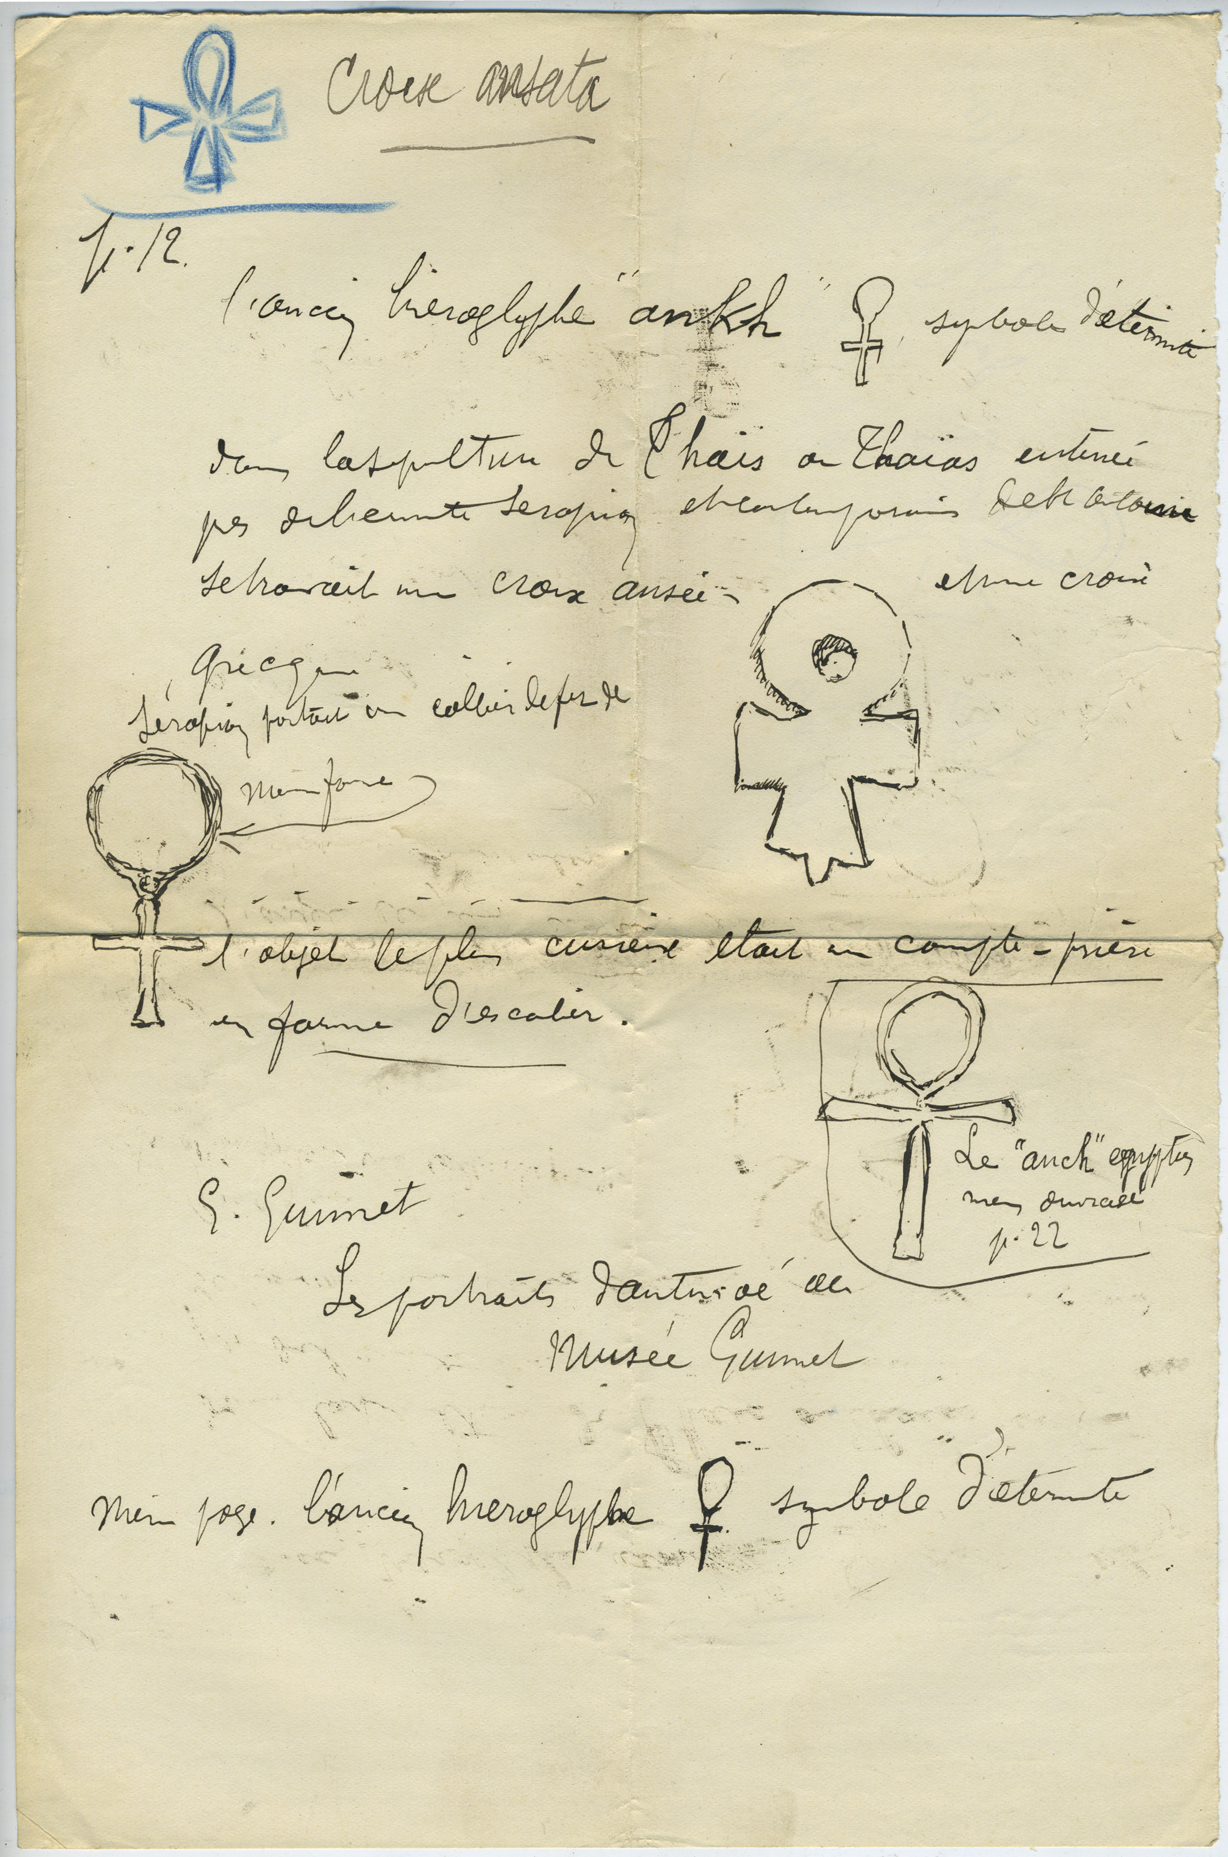 Croix ansata
p. 12.
l'ancien hieroglyphe "ankh" symbole d'éternité
dans la sepulture de Thaïs ou Thaïas enterrée
pres de l'ermite Serapion et contemporains de St Antoine
se trouvait une croix ansée et une croix
grecque
Sérapion portait un collier de fer de
même forme
l'objet le plus curieux était un compte-prière
en forme d'escalier.
Le "anch" egyptien
même ouvrage
p. 22
E. Guimet
Les portraits d'antinoé au
Musée Guimet
Même page. l'ancien hieroglyphe symbole d'éternité